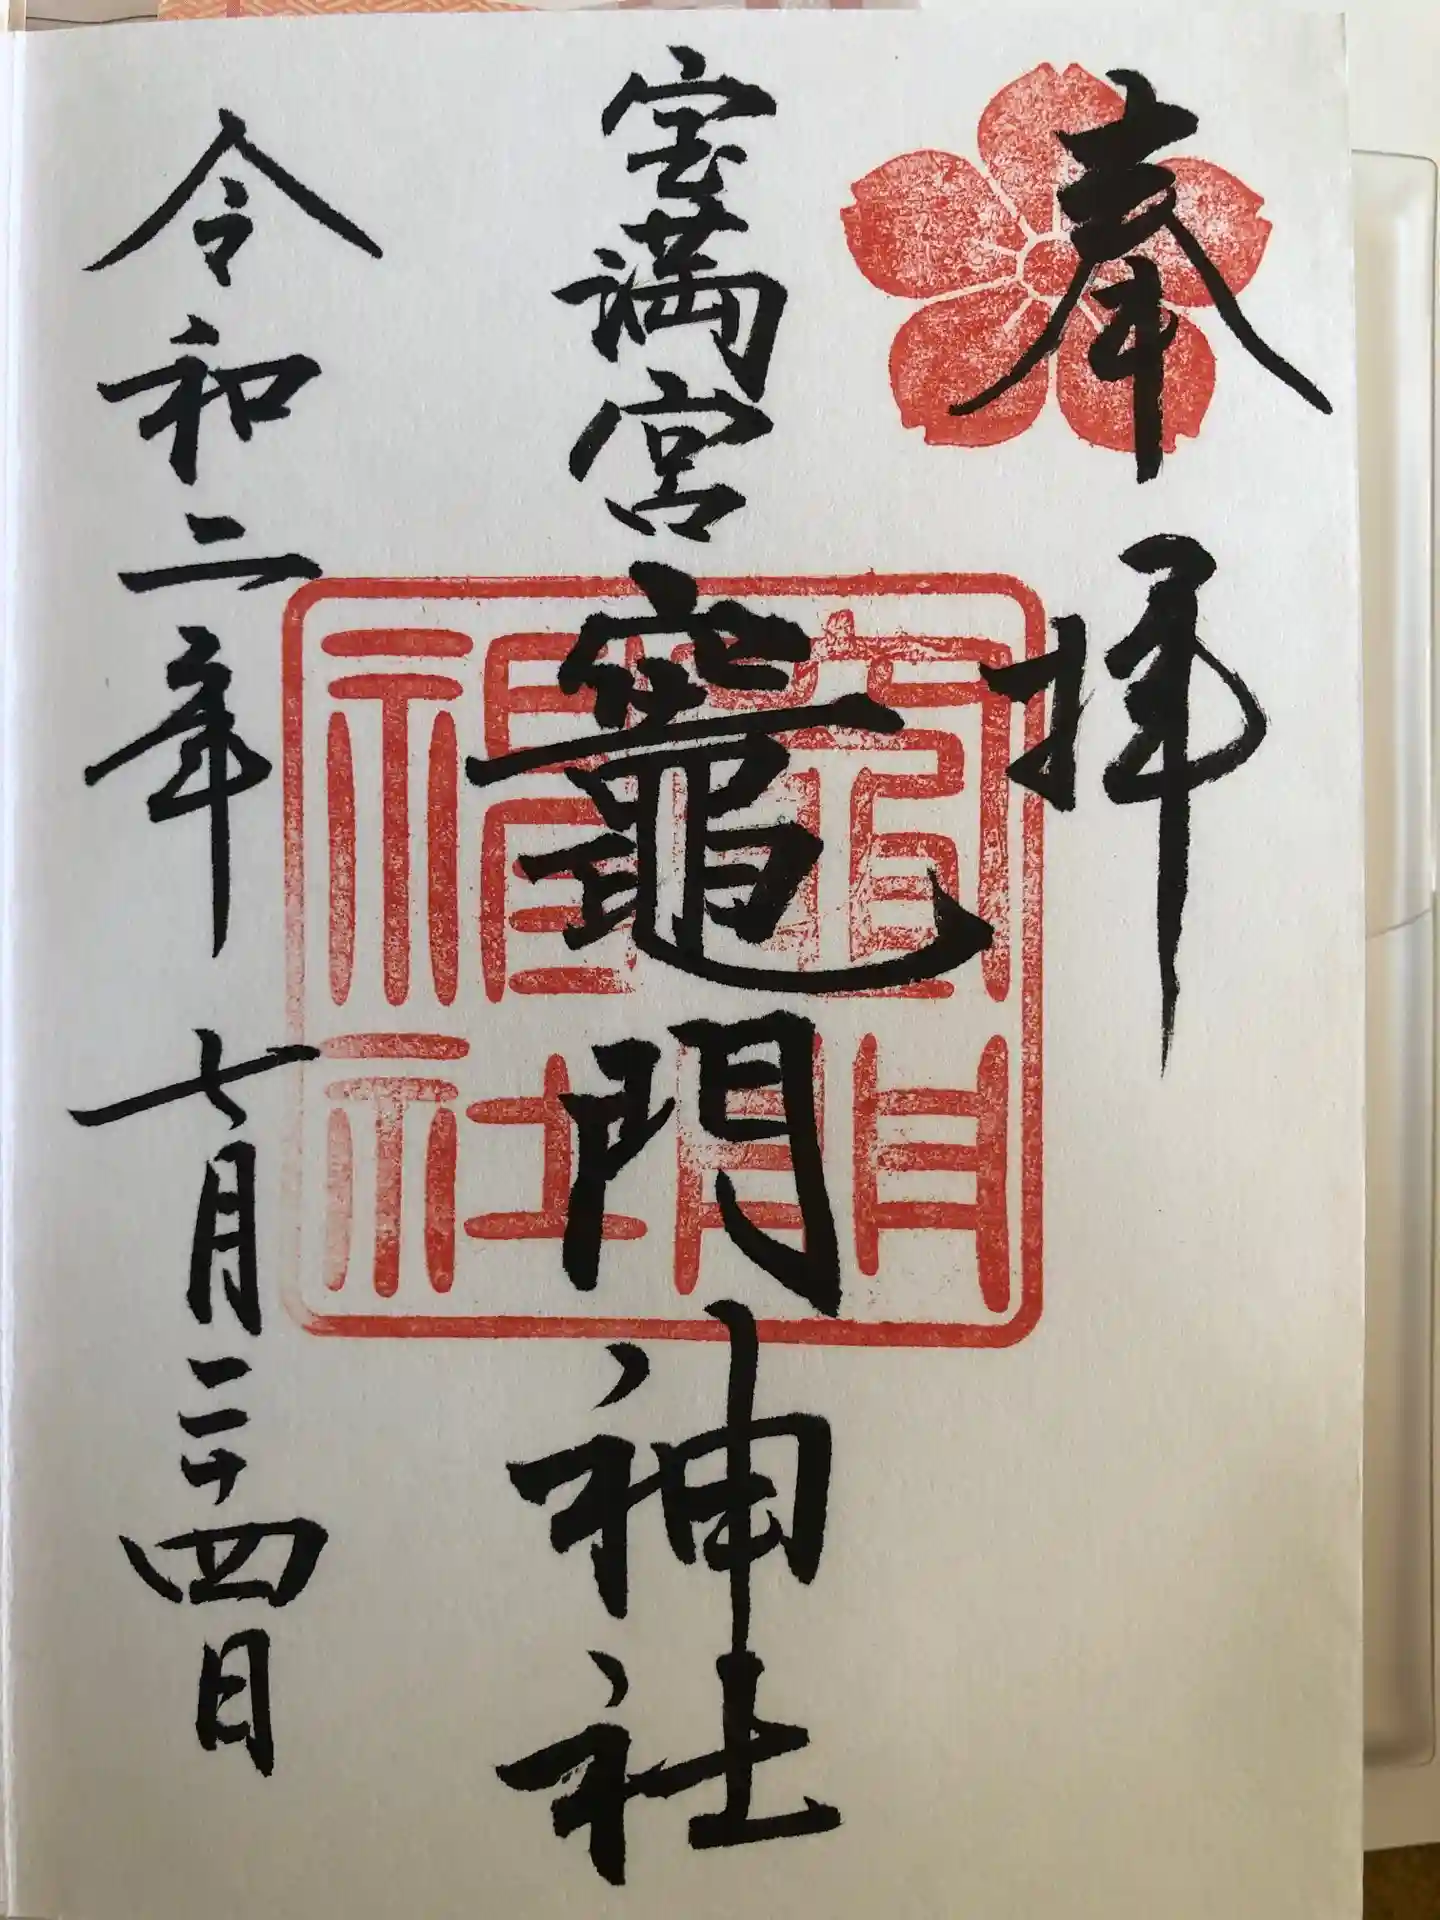 奉拝
宝満宮竈門神社
令和二年 七月二十四日
竈門神社